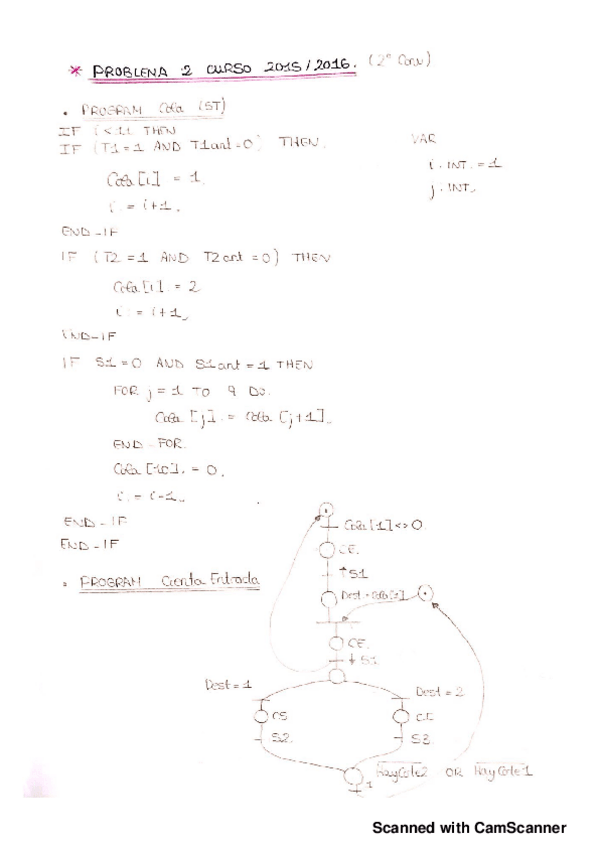 * PROBLEMA 2 CURSO 2015/2016. (2º Conv)
• PROGRAM Cola (ST)
IF i<11 THEN
IF (T1=1 AND T1ant=0) THEN.
Cola[i] = 1.
i = i+1.
END-IF
VAR
i: INT. = 1
j: INT.
IF (T2 =1 AND T2ant =0) THEN
Cola[i] = 2
i := i+1.
END-IF
IF S1=0 AND S1ant =1 THEN
FOR j=1 TO 9 DO.
Cola [j]. = Cola [j+1].
END-FOR.
Cola [10]. = 0.
i = i-1.
END-IF
END-IF
Cola[1]<>0
CE.
↑S1
Dest = Cola[1]
• PROGRAM Cienta Entrada
CE.
↓S1
Dest = 1
Dest = 2
CS
S2.
S3
HayCole2 OR HayCole1
1
Scanned with CamScanner